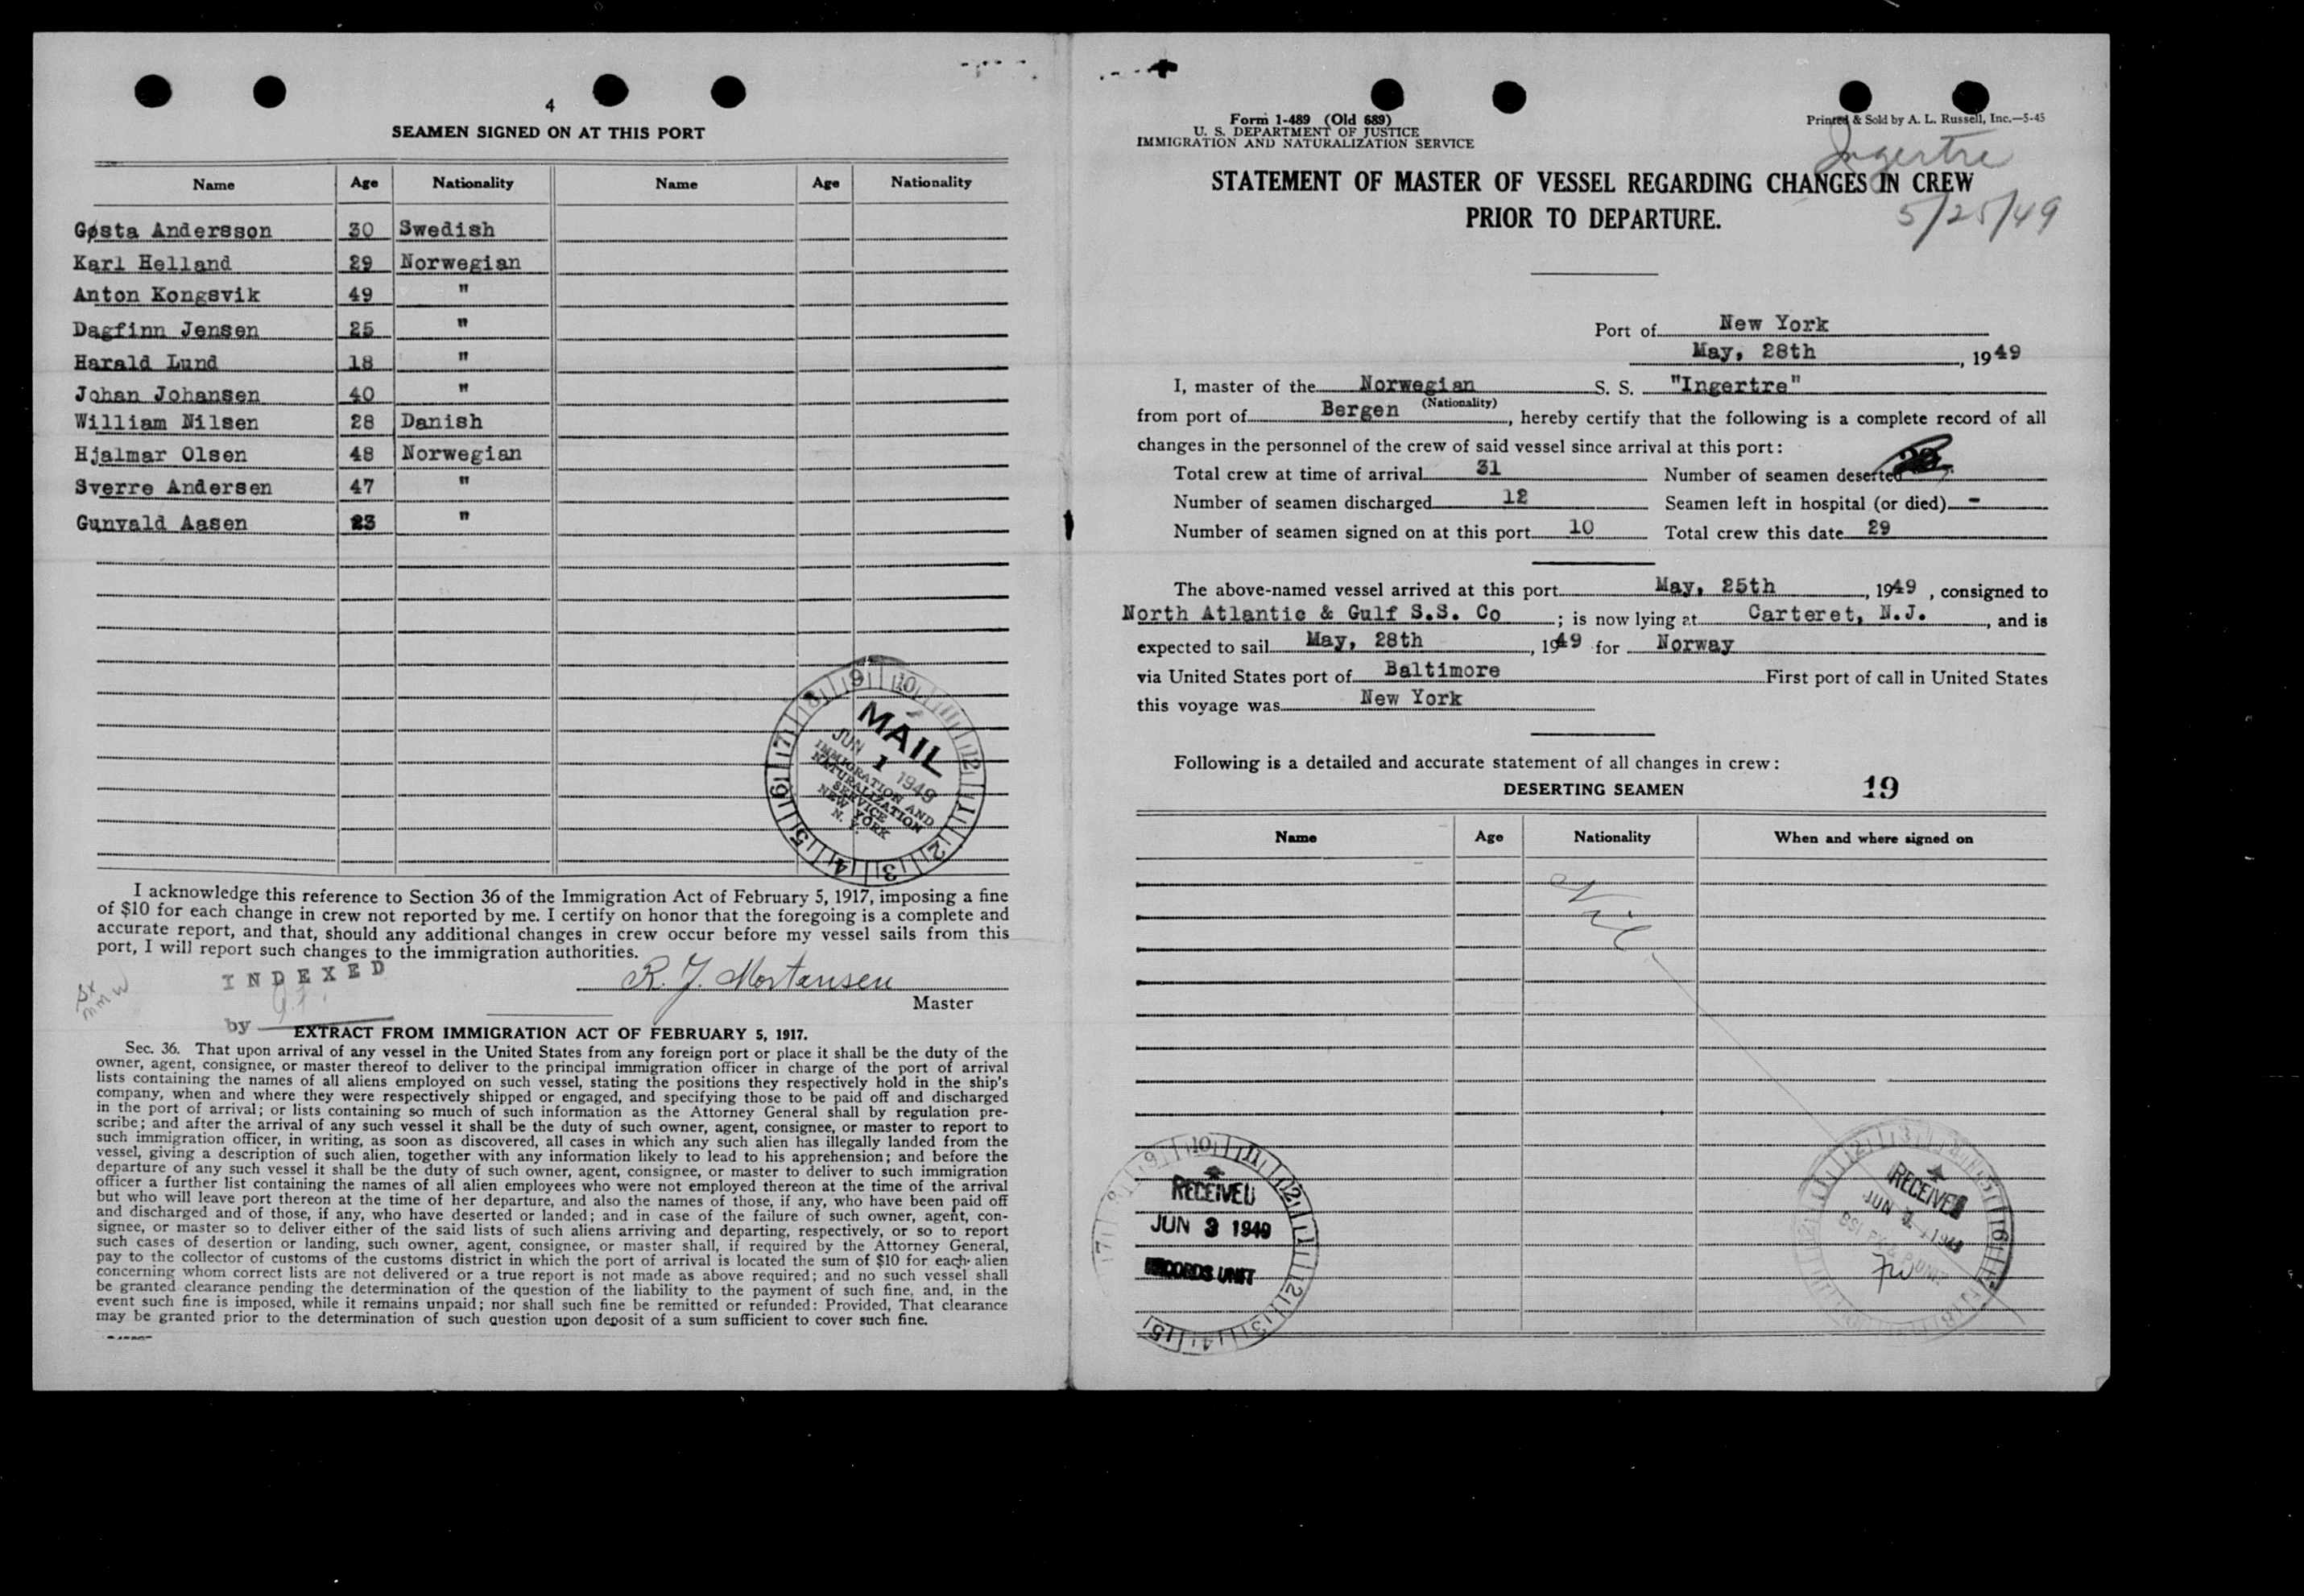 4
SEAMEN SIGNED ON AT THIS PORT
Name Age Nationality Name Age Nationality
Gøsta Andersson 30 Swedish
Karl Helland 29 Norwegian
Anton Kongsvik 49 "
Dagfinn Jensen 25 "
Harald Lund 18 "
Johan Johansen 40 "
William Nilsen 28 Danish
Hjalmar Olsen 48 Norwegian
Sverre Andersen 47 "
Gunvald Aasen 23 "
MAIL
JUN 1 1949
IMMIGRATION AND
NATURALIZATION
SERVICE
NEW YORK
N. Y.
I acknowledge this reference to Section 36 of the Immigration Act of February 5, 1917, imposing a fine
of $10 for each change in crew not reported by me. I certify on honor that the foregoing is a complete and
accurate report, and that, should any additional changes in crew occur before my vessel sails from this
port, I will report such changes to the immigration authorities.
INDEXED
R. J. Mortensen
Master
by
EXTRACT FROM IMMIGRATION ACT OF FEBRUARY 5, 1917.
Sec. 36. That upon arrival of any vessel in the United States from any foreign port or place it shall be the duty of the
owner, agent, consignee, or master thereof to deliver to the principal immigration officer in charge of the port of arrival
lists containing the names of all aliens employed on such vessel, stating the positions they respectively hold in the ship's
company, when and where they were respectively shipped or engaged, and specifying those to be paid off and discharged
in the port of arrival; or lists containing so much of such information as the Attorney General shall by regulation pre-
scribe; and after the arrival of any such vessel it shall be the duty of such owner, agent, consignee, or master to report to
such immigration officer, in writing, as soon as discovered, all cases in which any such alien has illegally landed from the
vessel, giving a description of such alien, together with any information likely to lead to his apprehension; and before the
departure of any such vessel it shall be the duty of such owner, agent, consignee, or master to deliver to such immigration
officer a further list containing the names of all alien employees who were not employed thereon at the time of the arrival
but who will leave port thereon at the time of her departure, and also the names of those, if any, who have been paid off
and discharged and of those, if any, who have deserted or landed; and in case of the failure of such owner, agent, con-
signee, or master so to deliver either of the said lists of such aliens arriving and departing, respectively, or so to report
such cases of desertion or landing, such owner, agent, consignee, or master shall, if required by the Attorney General,
pay to the collector of customs of the customs district in which the port of arrival is located the sum of $10 for each alien
concerning whom correct lists are not delivered or a true report is not made as above required; and no such vessel shall
be granted clearance pending the determination of the question of the liability to the payment of such fine, and, in the
event such fine is imposed, while it remains unpaid; nor shall such fine be remitted or refunded: Provided, That clearance
may be granted prior to the determination of such question upon deposit of a sum sufficient to cover such fine.
Form 1-489 (Old 689)
U. S. DEPARTMENT OF JUSTICE
IMMIGRATION AND NATURALIZATION SERVICE
Printed & Sold by A. L. Russell, Inc.—5-45
Ingertre
STATEMENT OF MASTER OF VESSEL REGARDING CHANGES IN CREW
PRIOR TO DEPARTURE.
5/25/49
Port of New York
May, 28th, 1949
I, master of the Norwegian S. S. "Ingertre"
(Nationality)
from port of Bergen, hereby certify that the following is a complete record of all
changes in the personnel of the crew of said vessel since arrival at this port:
Total crew at time of arrival 31 Number of seamen deserted
Number of seamen discharged 12 Seamen left in hospital (or died) -
Number of seamen signed on at this port 10 Total crew this date 29
The above-named vessel arrived at this port May, 25th, 1949, consigned to
North Atlantic & Gulf S.S. Co; is now lying at Carteret, N.J., and is
expected to sail May, 28th, 1949 for Norway
via United States port of Baltimore First port of call in United States
this voyage was New York
Following is a detailed and accurate statement of all changes in crew:
DESERTING SEAMEN 19
Name Age Nationality When and where signed on
Nil
RECEIVED
JUN 3 1949
RECORDS UNIT
RECEIVED
JUN